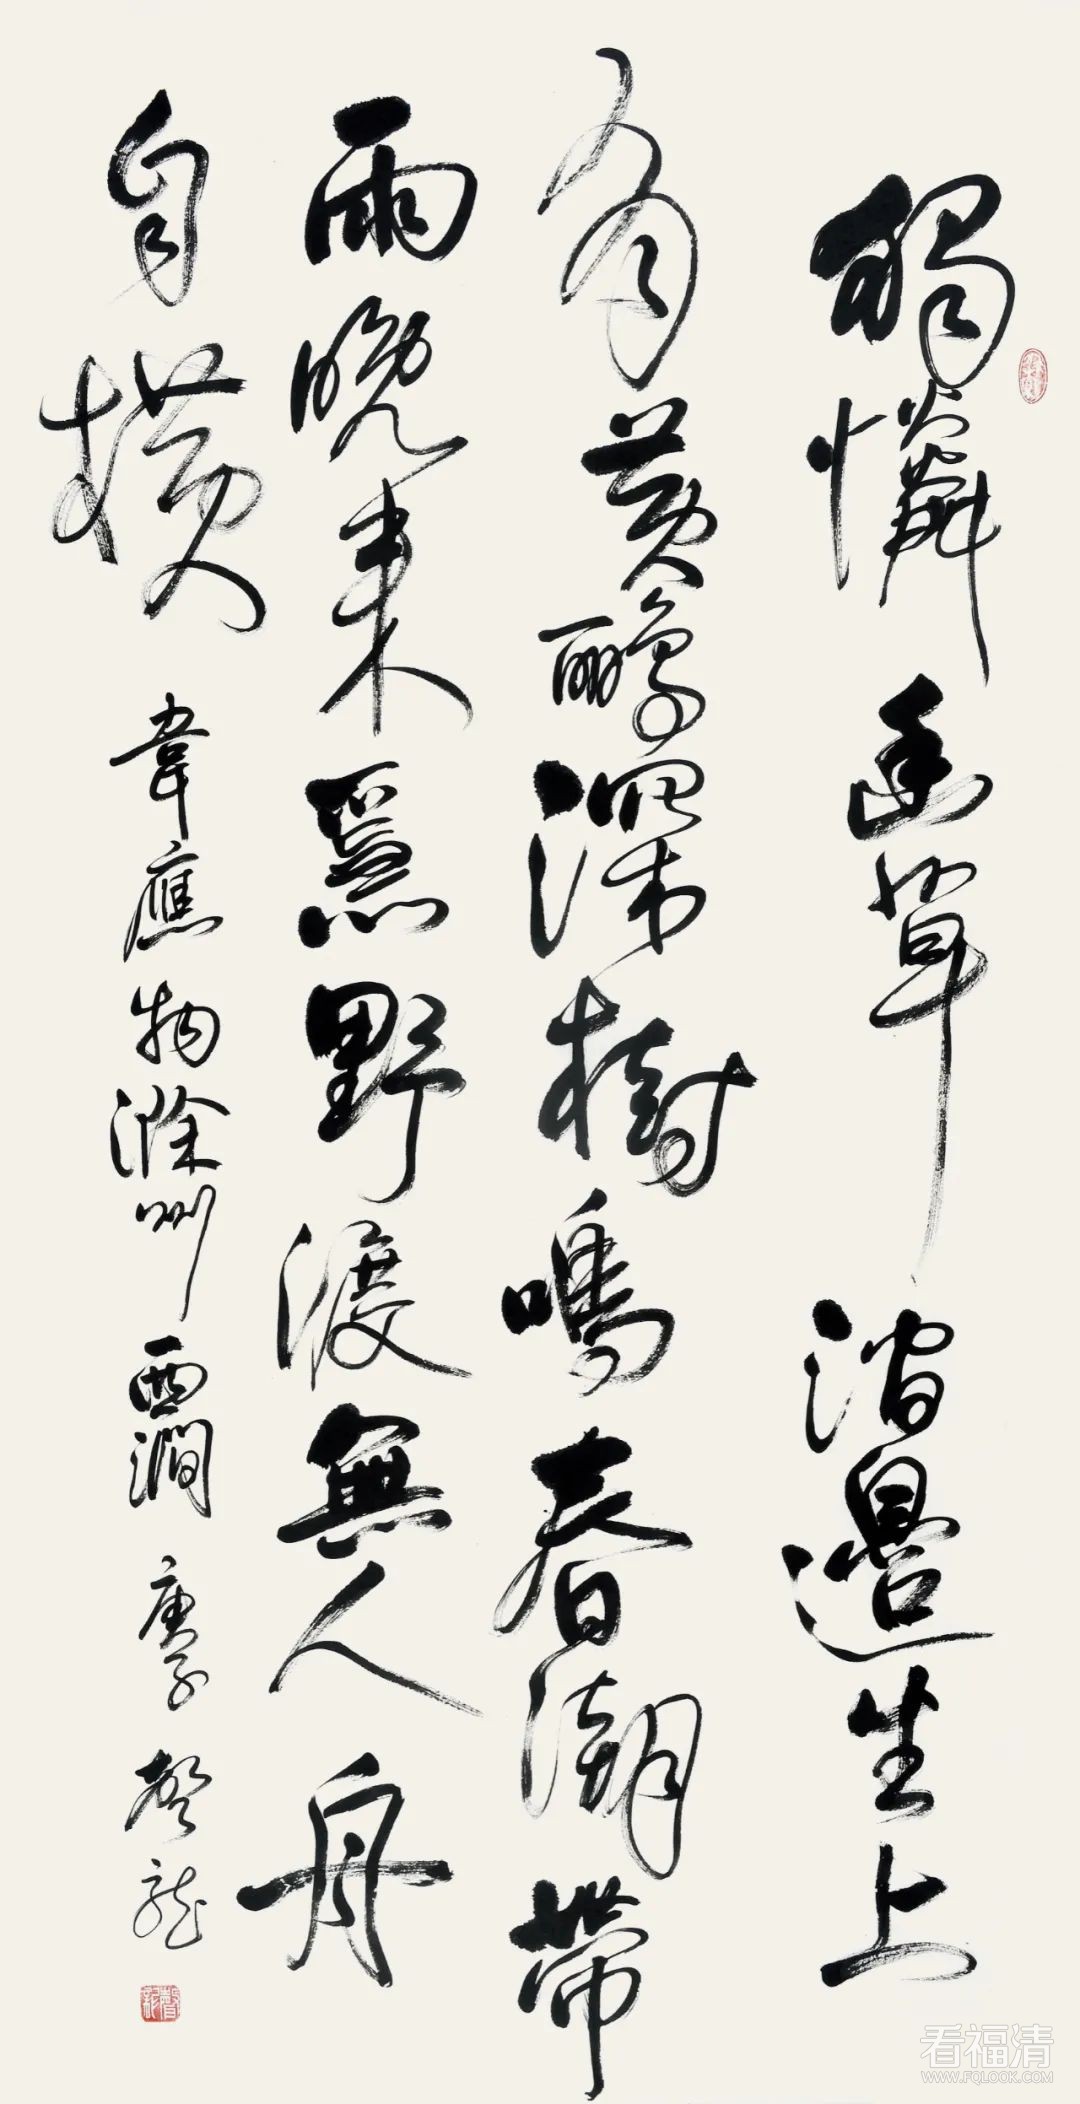 獨憐幽草澗邊生上
有黃鸝深樹鳴春潮帶
雨晚来急野渡無人舟
自橫
韋應物滁州西澗 庚子 聲龍
看福清
WWW.FQLOOK.COM